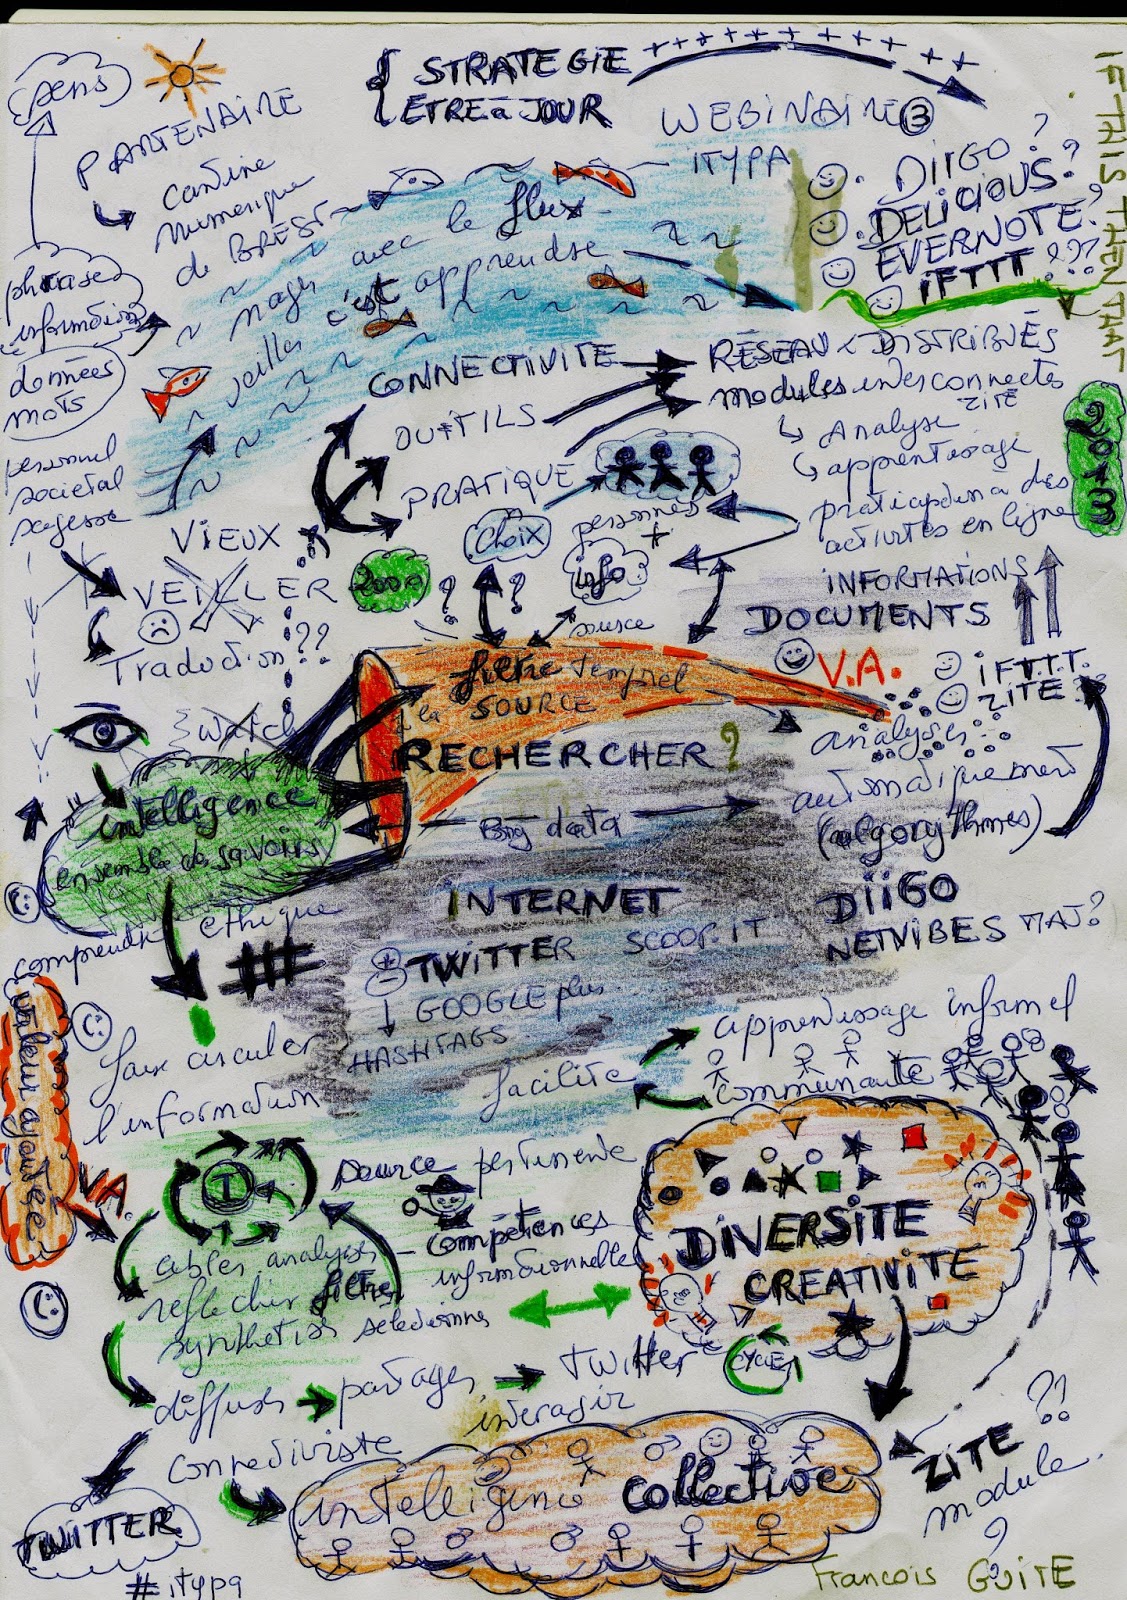 STRATEGIE
ETRE à JOUR
WEBINAIRE 3
ITYPA
IF THIS THEN THAT
sens
PARTENAIRE
cantine
numerique
de BREST
phrases
informations
données
mots
personnel
societal
sagesse
nager avec le flux
veiller c'est apprendre
DiiGO?
DELICIOUS?
EVERNOTE?
iFTTT???
CONNECTIVITE
OUTILS
PRATIQUE
RÉSEAUX DISTRIBUÉS
modules interconnectés
ZITE
Analyse
apprentissage
participation à des
activités en ligne
2013
ViEUX
VEILLER
2000
Traduction??
Watch
Choix
?
?
personnes
+
info
source
iNFORMATIONS
DOCUMENTS
V.A.
iFTTT.
ZITE
filtre temporel
la SOURCE
RECHERCHER?
analyser
automatiquement
(algorythmes)
Big data
intelligence
ensemble de savoirs
comprendre
ethique
iNTERNET
TWiTTER SCOOP.IT
GOOGLE plus
HASHTAGS
DiiGO
NETVIBES MAJ?
valeur ajoutée
V.A.
faire circuler
l'information
facilite
apprentissage informel
communauté
source pertinente
I
compétences
informationnelles
cibler analyser
reflechir filtrer
synthetiser selectionner
DiVERSiTE
CREATIVITE
CYCLES
diffuser
partager
twitter
interagir
connectiviste
intelligence collective
ZITE ??
module
?
TWITTER
#itypa
Francois GUITE